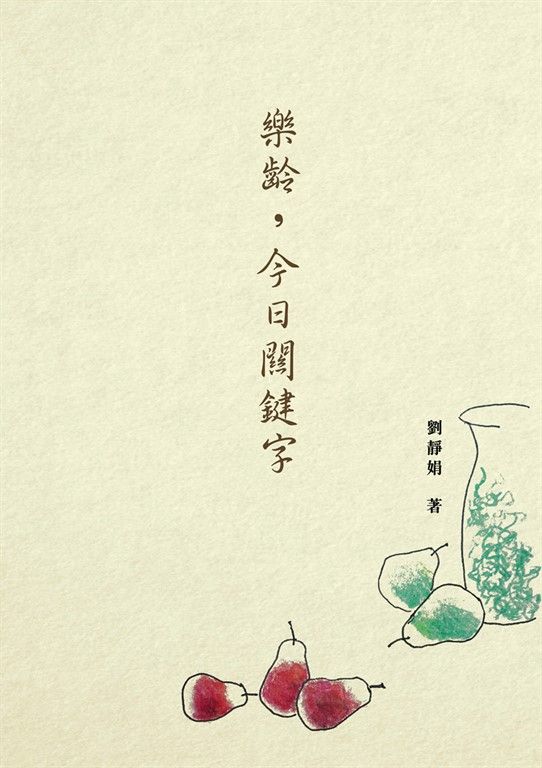 樂齡，今日關鍵字
劉靜娟 著